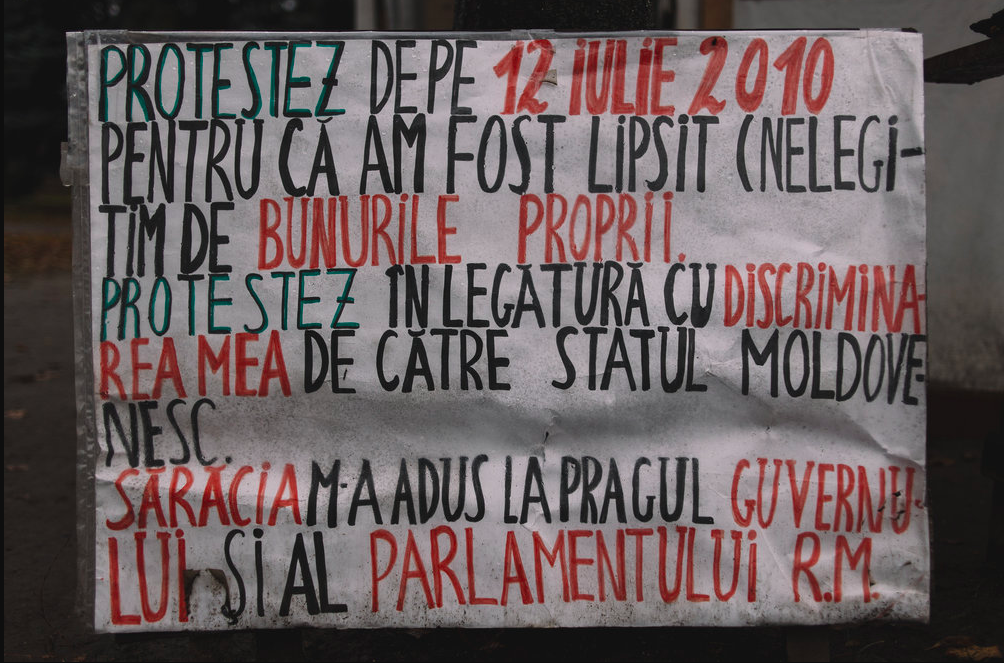 PROTESTEZ DE PE 12 IULIE 2010
PENTRU CĂ AM FOST LIPSIT (NELEGI-
TIM DE BUNURILE PROPRII.
PROTESTEZ ÎN LEGĂTURĂ CU DISCRIMINA-
REA MEA DE CĂTRE STATUL MOLDOVE-
NESC.
SĂRĂCIA M-A ADUS LA PRAGUL GUVERNU-
LUI ȘI AL PARLAMENTULUI R.M.